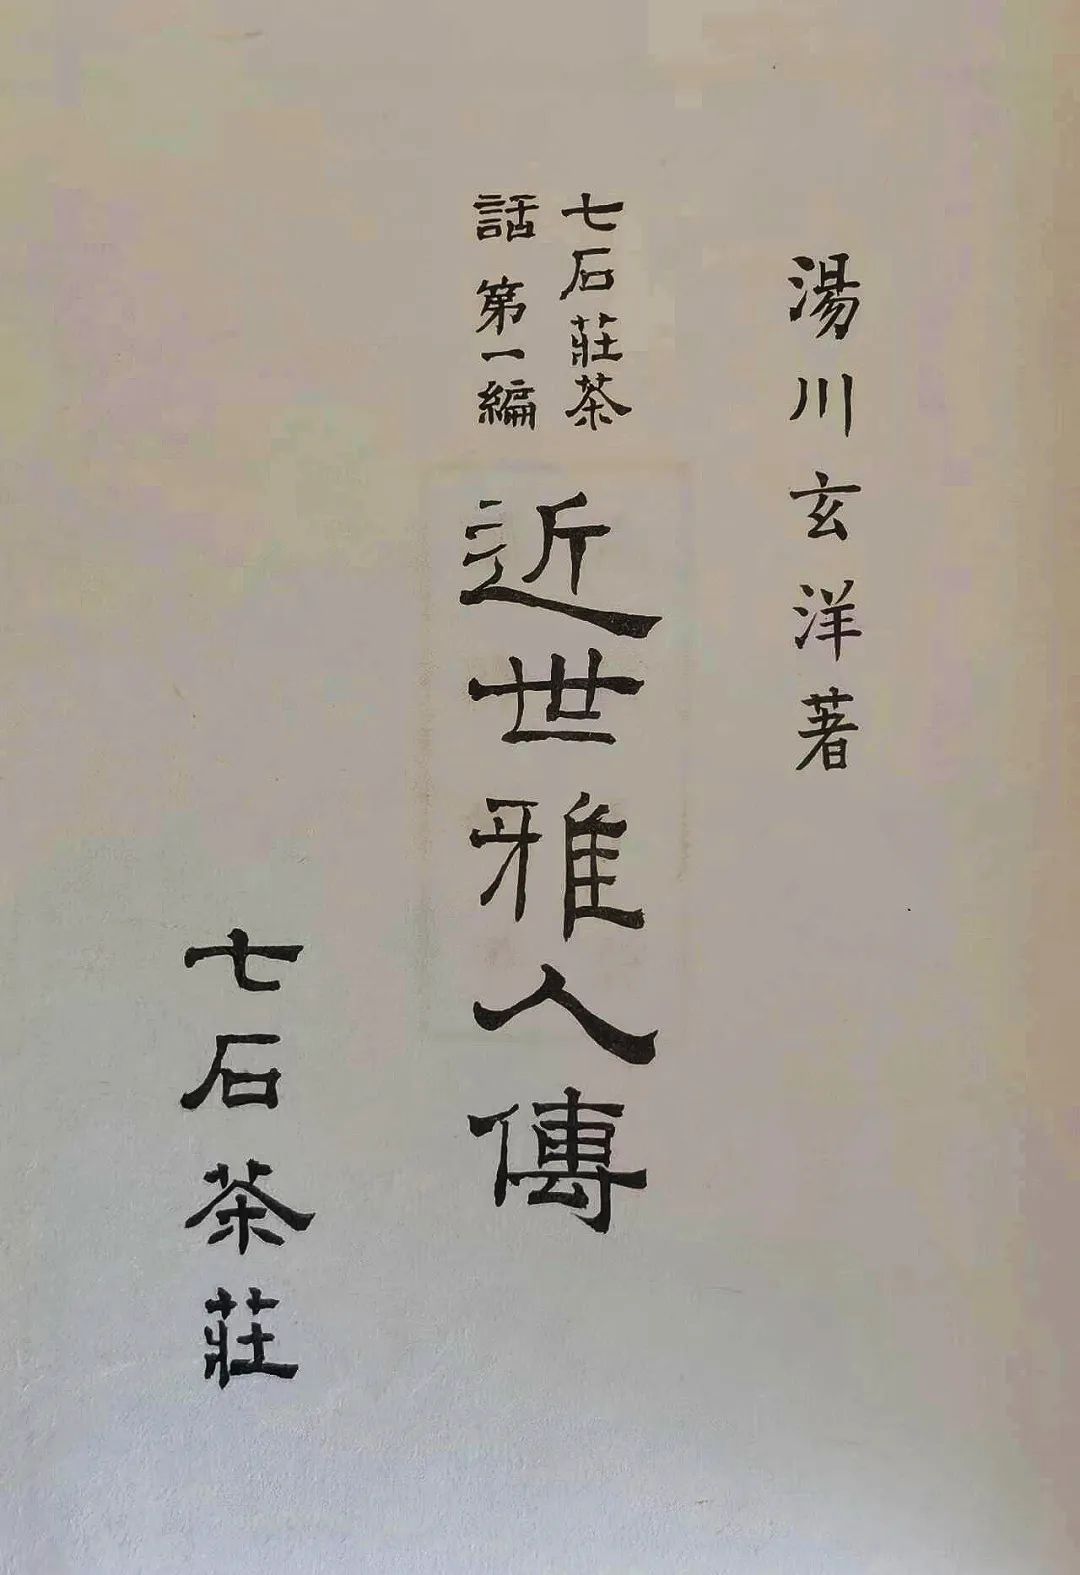 湯川玄洋著
七石莊茶
話 第一編
近世雅人傳
七石茶莊